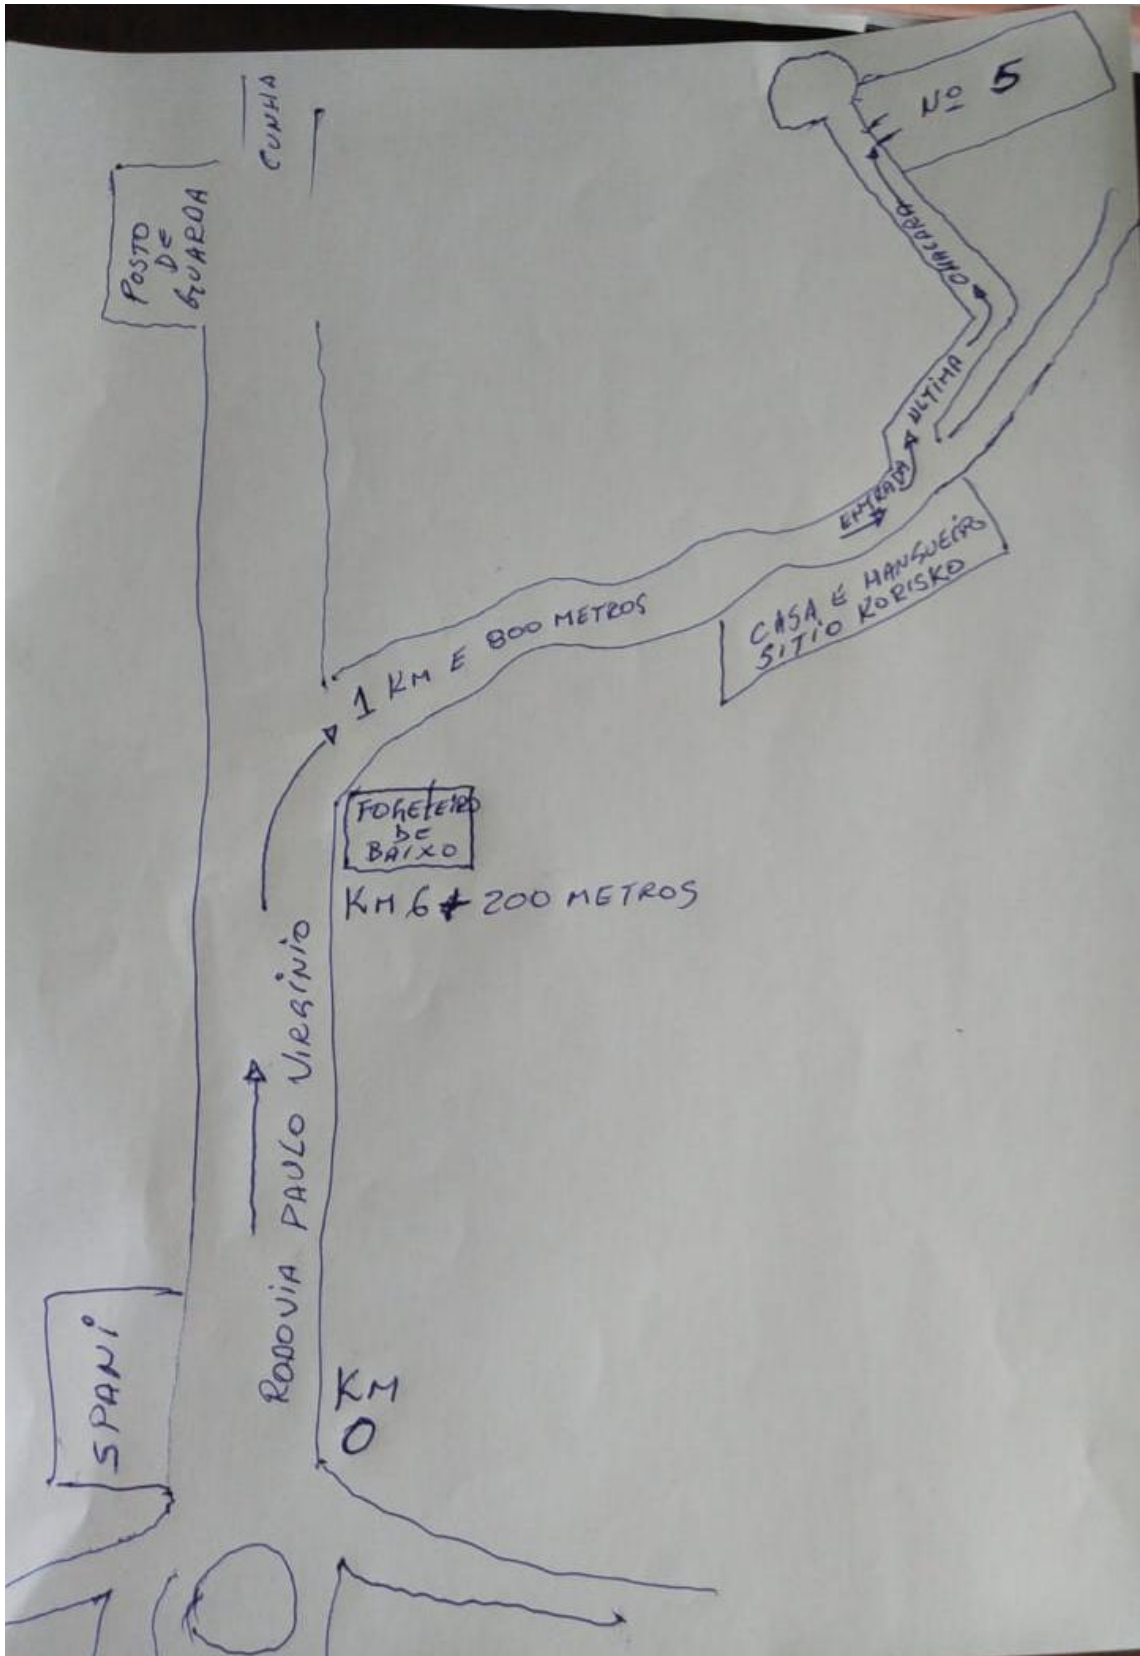 Nº 5
CUNHA
POSTO
DE
GUARDA
CHACARA
ULTIMA
ENTRADA
CASA E MANGUEIRO
SITIO KORISKO
1 KM E 800 METROS
DE
BAIXO
KM 6 + 200 METROS
RODOVIA PAULO VIRGINIO
SPANI
KM
0